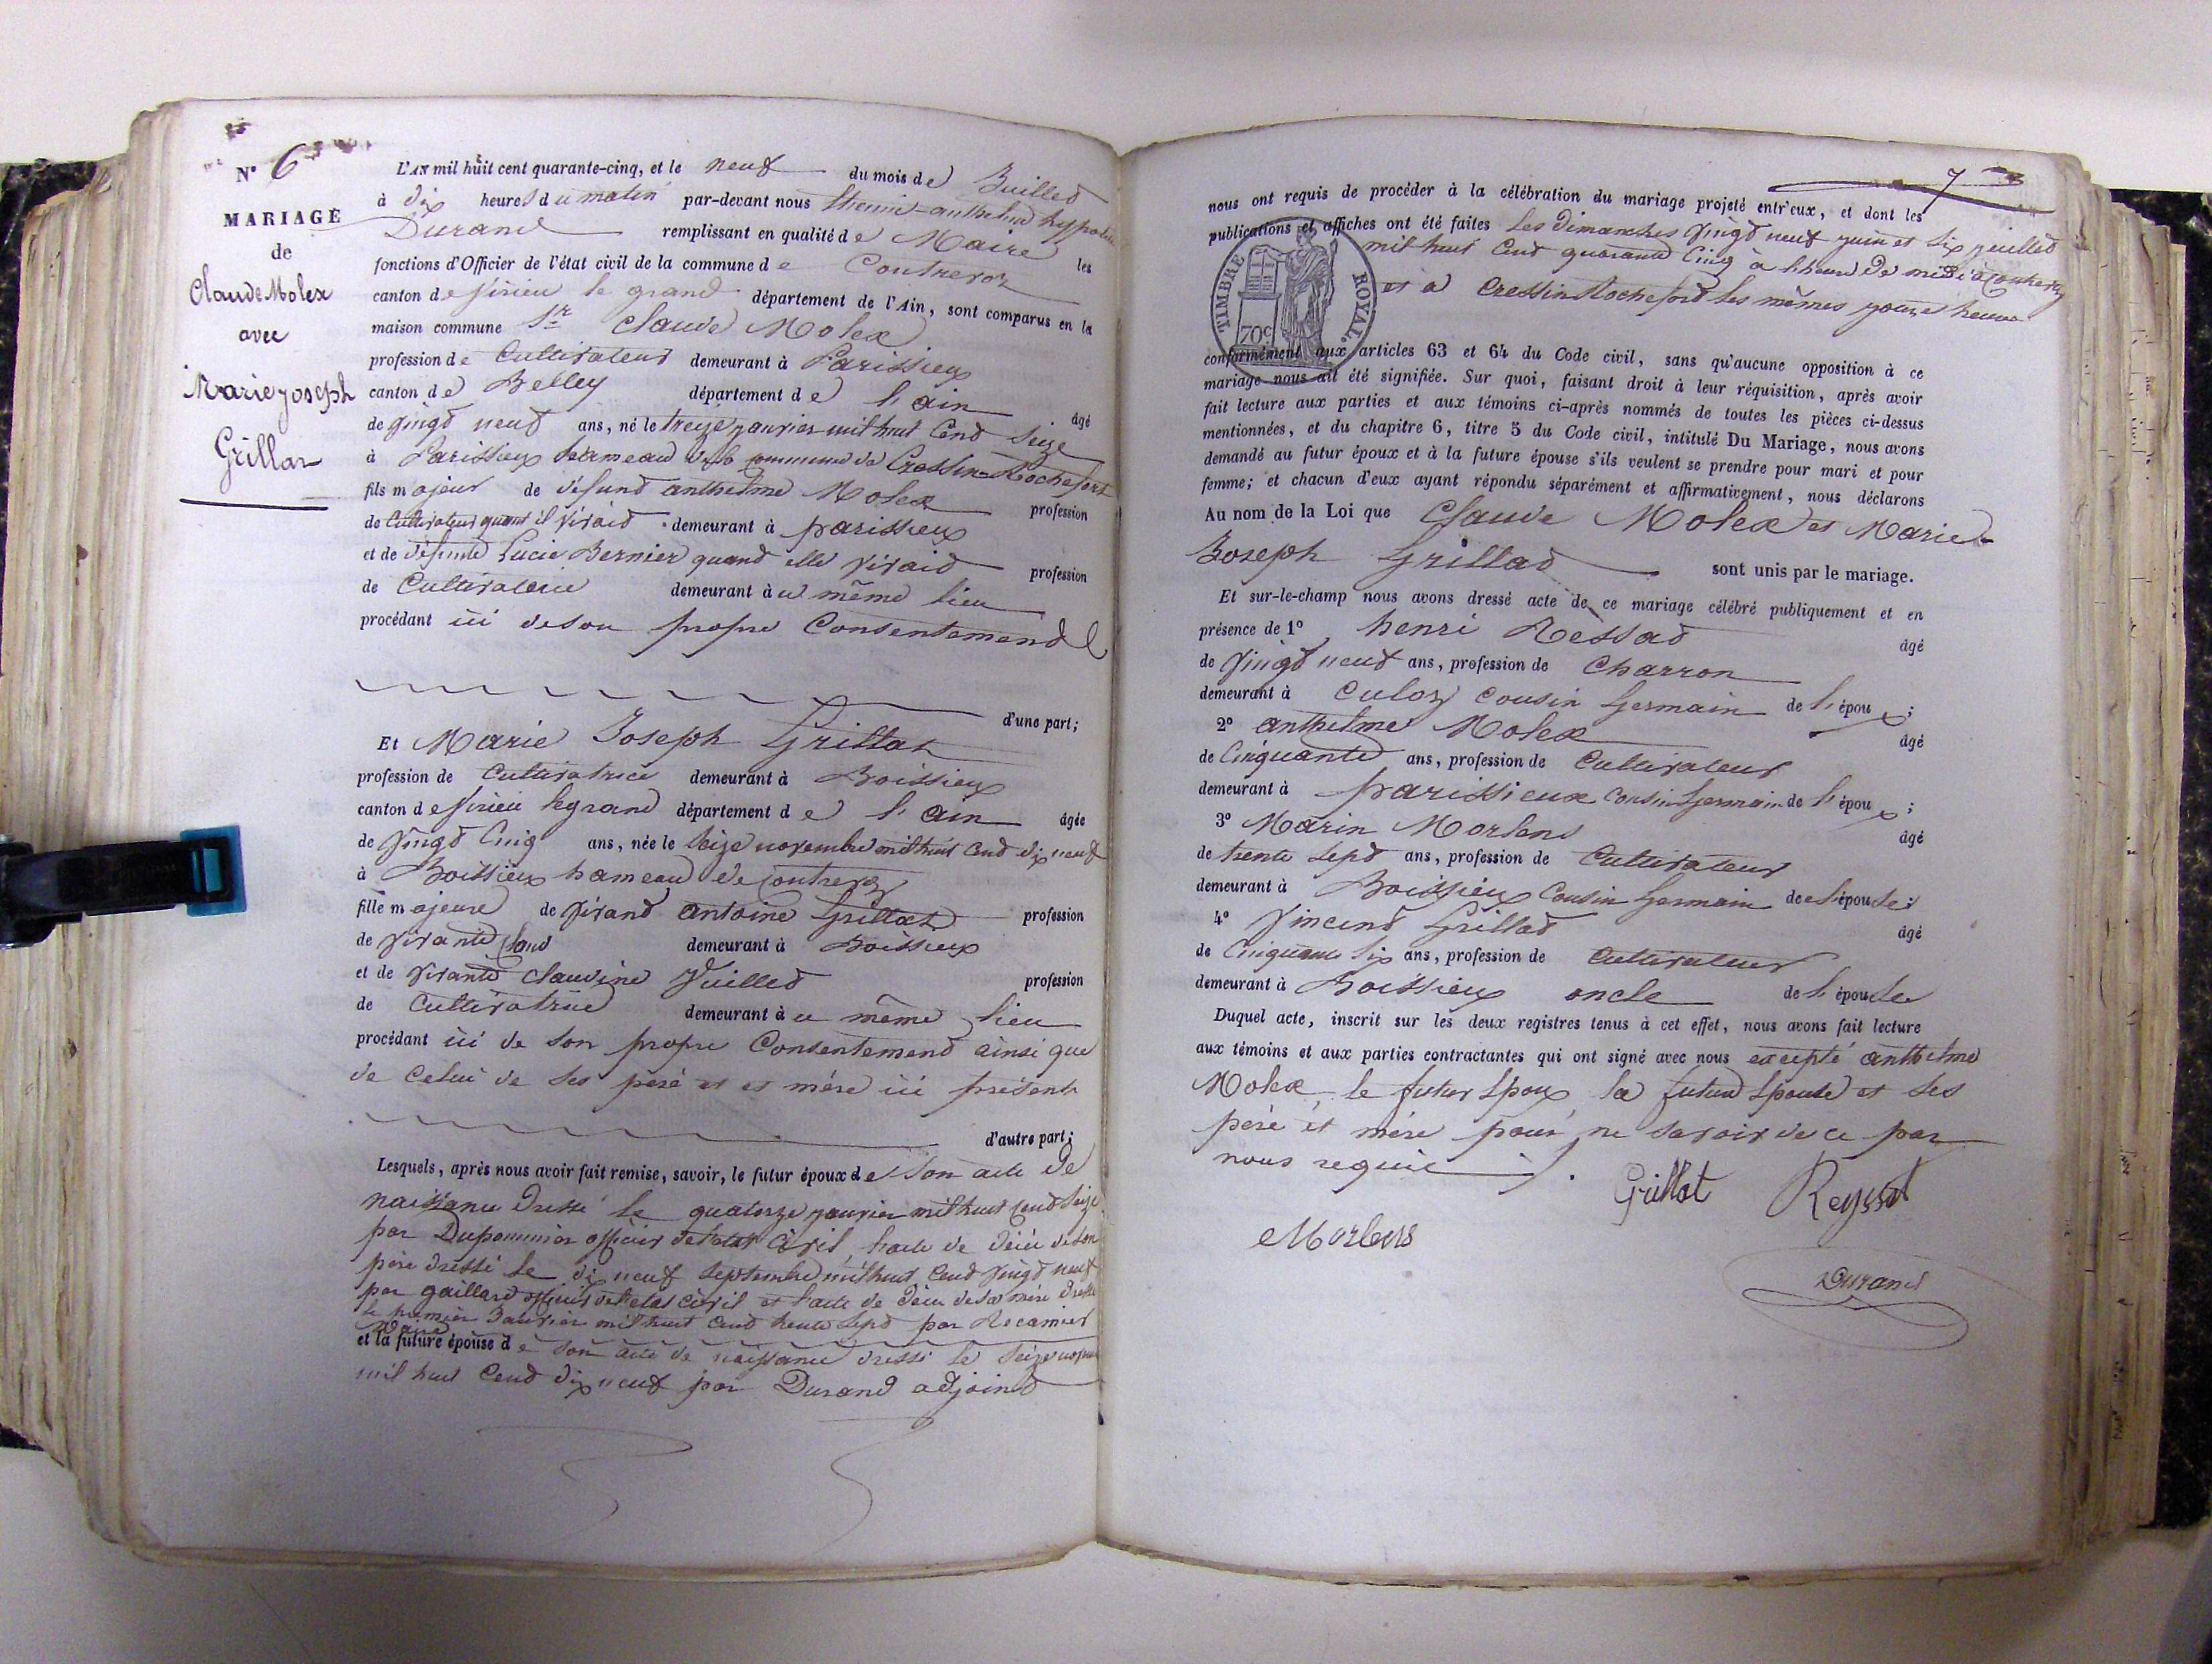 N° 6
MARIAGE
de
Claude Molex
avec
Marie joseph
Grillat
L'AN mil huit cent quarante-cinq, et le neuf du mois de Juillet
à dix heures du matin par-devant nous anthelme hypolite
Durand remplissant en qualité de Maire les
fonctions d'Officier de l'état civil de la commune de Contrevoz
canton de Virieu le grand département de l'Ain, sont comparus en la
maison commune Sr Claude Molex
profession de Cultivateur demeurant à Parissieu
canton de Belley département de l'ain âgé
de vingt neuf ans, né le treize janvier mil huit Cent Seize
à Parissieux hameau de la commune de Cressin-Rochefort
fils majeur de défunt anthelme Molex profession
de Cultivateur quant il vivait demeurant à parissieux
et de défunte Lucie Bernier quand elle vivait profession
de Cultivatrice demeurant au même lieu
procédant ici de son propre Consentement
d'une part;
Et Marie Joseph Grillat
profession de Cultivatrice demeurant à Boissieux
canton de Virieu le grand département de l'ain âgée
de vingt Cinq ans, née le Seize novembre mil huit Cent dix neuf
à Boissieux hameau de Contrevoz
fille majeure de vivant antoine Grillat profession
de demeurant à Boissieux
et de vivante Claudine Juillet profession
de Cultivatrice demeurant au même lieu
procédant ici de son propre Consentement ainsi que
de Celui de ses père et et mère ici présent
d'autre part;
Lesquels, après nous avoir fait remise, savoir, le futur époux de Son acte de
naissance dressé le quatorze janvier mil huit Cent Seize
par Dupommier officier de l'état Civil, l'acte de décès de son
père dressé le dix neuf Septembre mil huit Cent vingt neuf
par gaillard officier de l'état Civil et l'acte de décès de sa mère dressé
le premier Janvier mil huit Cent trente Sept par Récamier
Maire
et la future épouse de son acte de naissance dressé le Seize
mil huit Cent dix neuf par Durand adjoint
7
nous ont requis de procéder à la célébration du mariage projeté entr'eux, et dont les
publications et affiches ont été faites Les dimanches vingt neuf juin et six juillet
mil huit Cent quarante Cinq à l'heure de midi à Contrevoz
et à Cressin Rochefort les mêmes jours et heures
TIMBRE ROYAL.
70c
conformément aux articles 63 et 64 du Code civil, sans qu'aucune opposition à ce
mariage nous ait été signifiée. Sur quoi, faisant droit à leur réquisition, après avoir
fait lecture aux parties et aux témoins ci-après nommés de toutes les pièces ci-dessus
mentionnées, et du chapitre 6, titre 5 du Code civil, intitulé Du Mariage, nous avons
demandé au futur époux et à la future épouse s'ils veulent se prendre pour mari et pour
femme; et chacun d'eux ayant répondu séparément et affirmativement, nous déclarons
Au nom de la Loi que Claude Molex et Marie-
Joseph Grillat sont unis par le mariage.
Et sur-le-champ nous avons dressé acte de ce mariage célébré publiquement et en
présence de 1° henri Ressat âgé
de vingt neuf ans, profession de Charron
demeurant à Culoz Cousin Germain de l'époux;
2° anthelme Molex âgé
de Cinquante ans, profession de Cultivateur
demeurant à parissieux Cousin Germain de l'époux;
3° Marin Morlens âgé
de trente Sept ans, profession de Cultivateur
demeurant à Boissieux Cousin Germain de l'épouse;
4° Vincent Grillat âgé
de Cinquante Six ans, profession de Cultivateur
demeurant à Boissieux oncle de l'épouse
Duquel acte, inscrit sur les deux registres tenus à cet effet, nous avons fait lecture
aux témoins et aux parties contractantes qui ont signé avec nous excepté anthelme
Molex, le futur Epoux, la future Epouse et Ses
père et mère pour ne savoir de ce par
nous requis.
Grillat Reyssat
Morlens
Durand